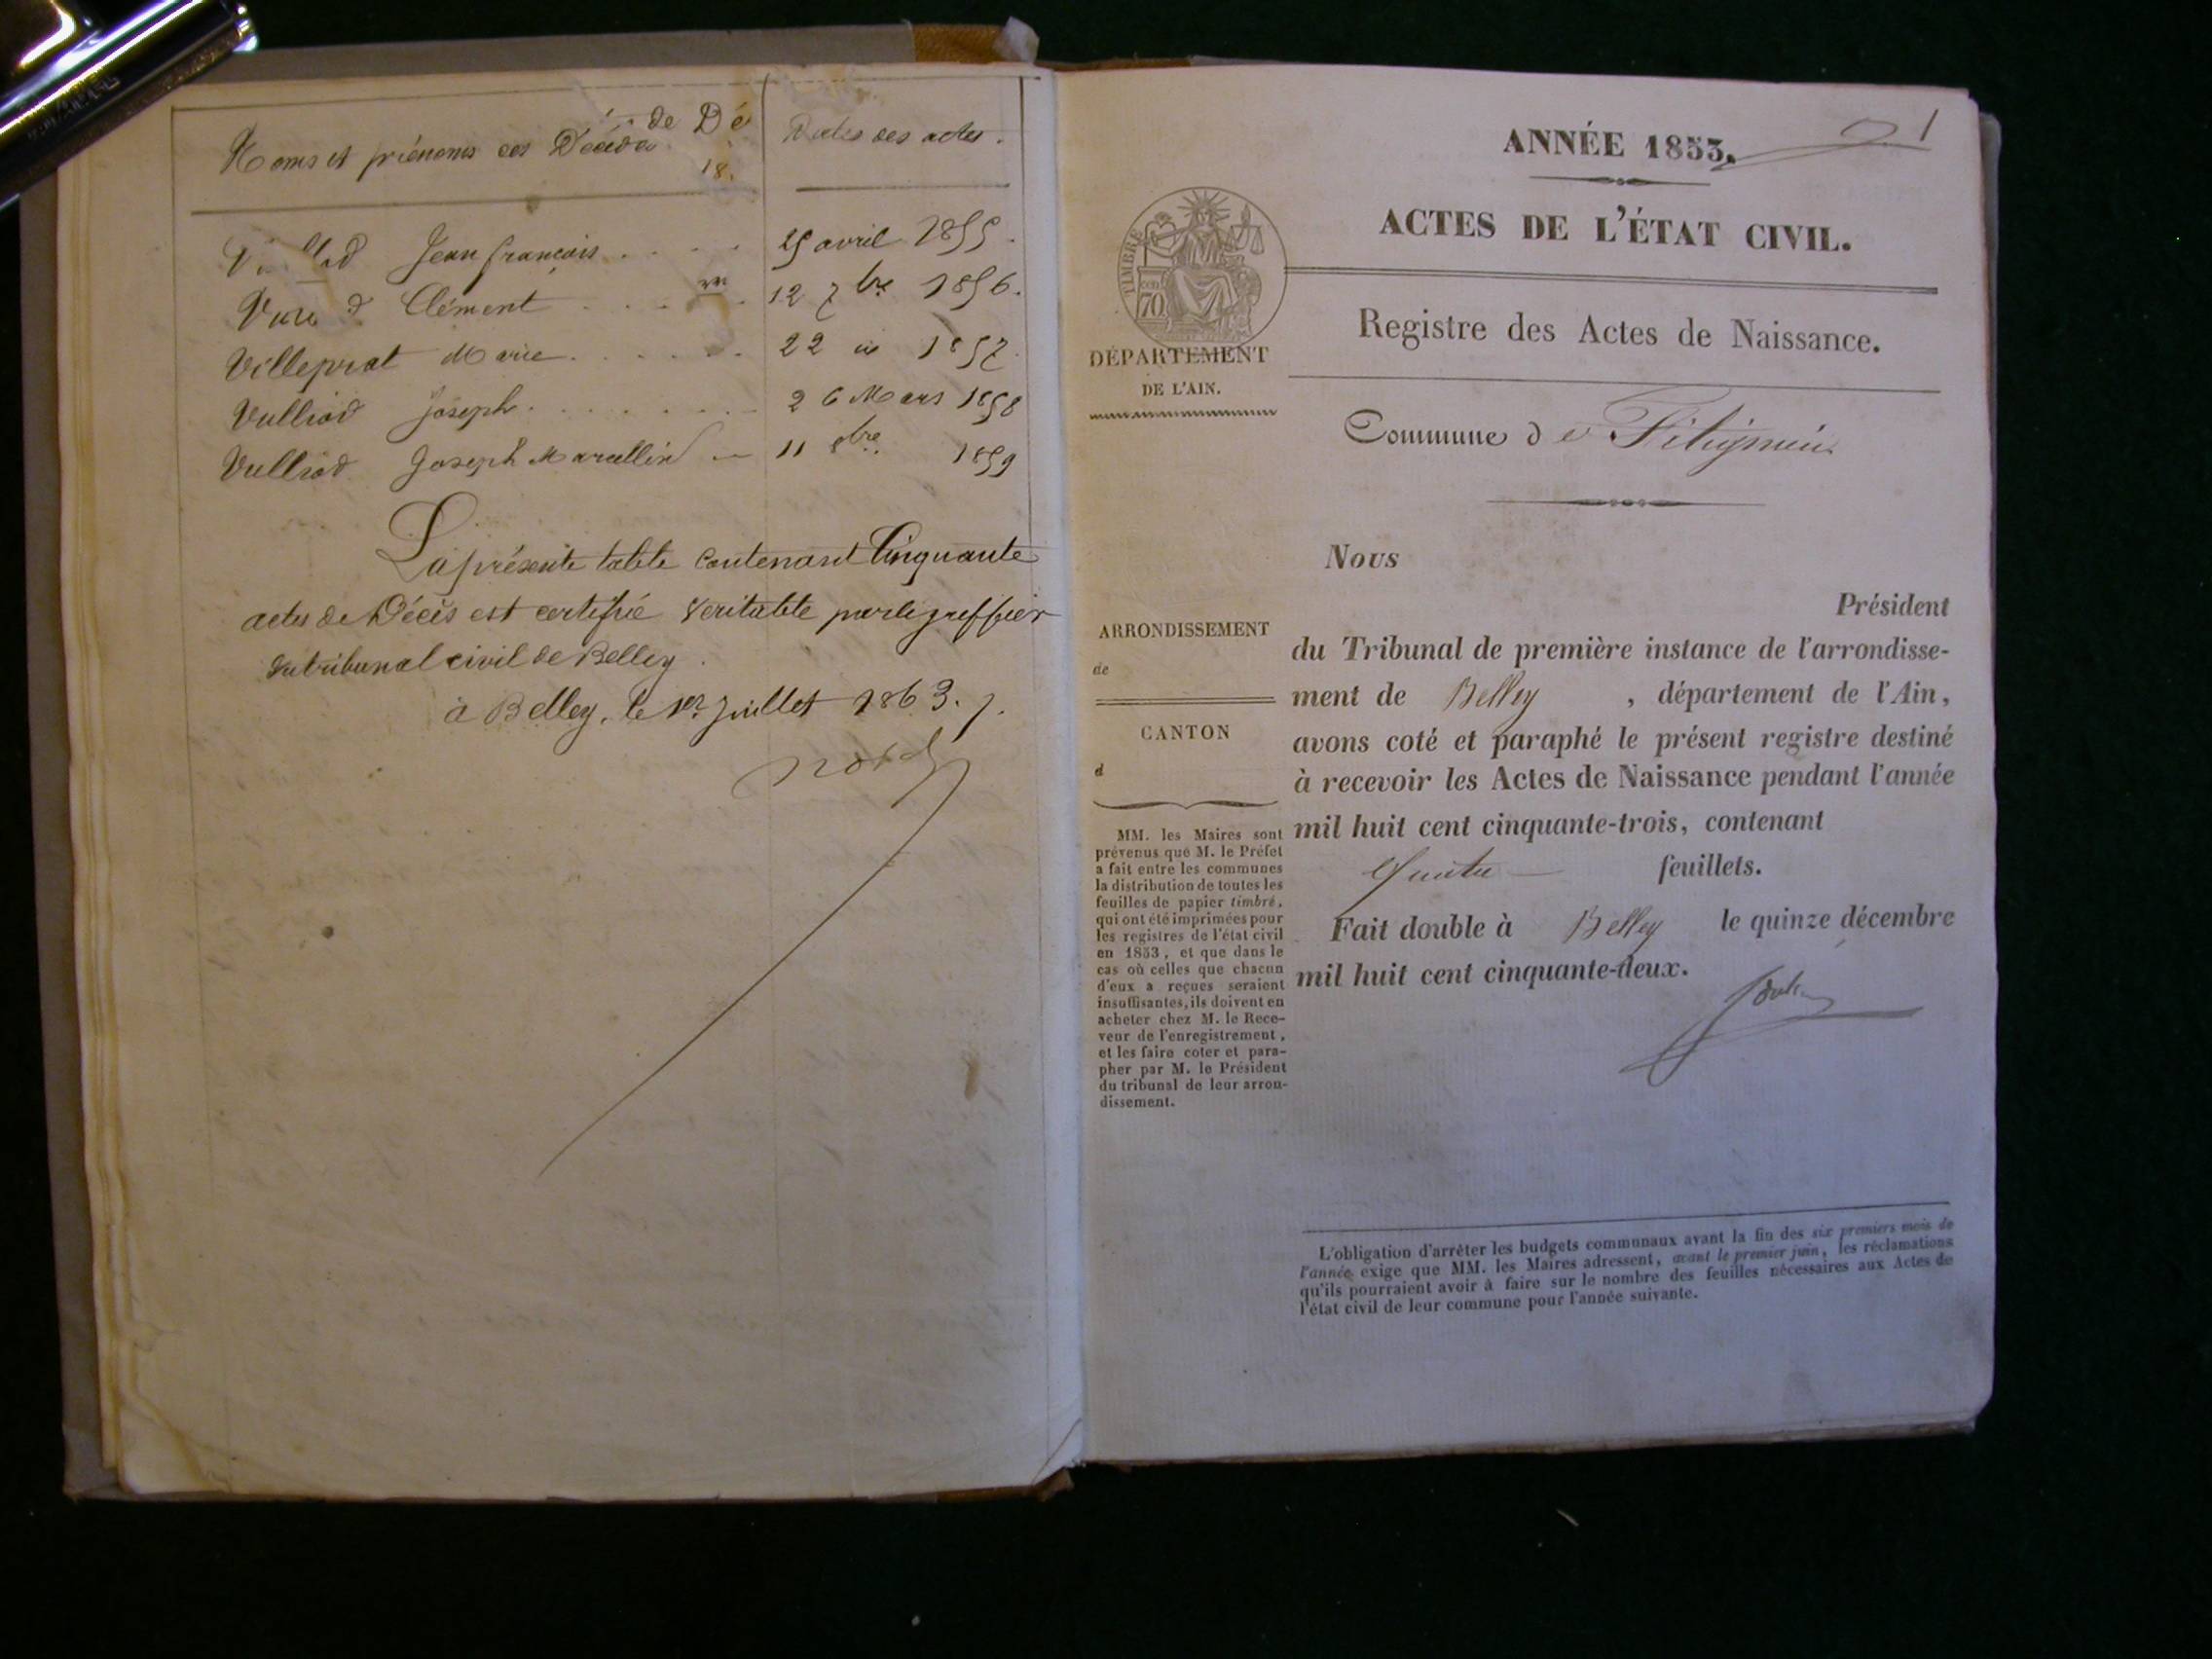 de Dé
Noms et prénoms des Décédés
18.
Dates des actes.
Jean françois 25 avril 1855.
Clément 12 7bre 1856.
Villeprat Marie 22 id 1857.
Vulliod Joseph 26 Mars 1858
Vulliod Joseph Marcellin 11 8bre 1859
La présente table contenant Cinquante
actes de Décès est certifiée veritable par le greffier
du tribunal civil de Belley.
à Belley, le 1er Juillet 1863.
1
ANNÉE 1853.
ACTES DE L'ÉTAT CIVIL.
TIMBRE
cen
70
DÉPARTEMENT
DE L'AIN.
Registre des Actes de Naissance.
Commune de
Nous
Président
du Tribunal de première instance de l'arrondisse-
ment de Belley, département de l'Ain,
avons coté et paraphé le présent registre destiné
à recevoir les Actes de Naissance pendant l'année
mil huit cent cinquante-trois, contenant
feuillets.
Fait double à Belley le quinze décembre
mil huit cent cinquante-deux.
ARRONDISSEMENT
de
CANTON
d
MM. les Maires sont
prévenus que M. le Préfet
a fait entre les communes
la distribution de toutes les
feuilles de papier timbré,
qui ont été imprimées pour
les registres de l'état civil
en 1853, et que dans le
cas où celles que chacun
d'eux a reçues seraient
insuffisantes, ils doivent en
acheter chez M. le Rece-
veur de l'enregistrement,
et les faire coter et para-
pher par M. le Président
du tribunal de leur arron-
dissement.
L'obligation d'arrêter les budgets communaux avant la fin des six premiers mois de
l'année exige que MM. les Maires adressent, avant le premier juin, les réclamations
qu'ils pourraient avoir à faire sur le nombre des feuilles nécessaires aux Actes de
l'état civil de leur commune pour l'année suivante.